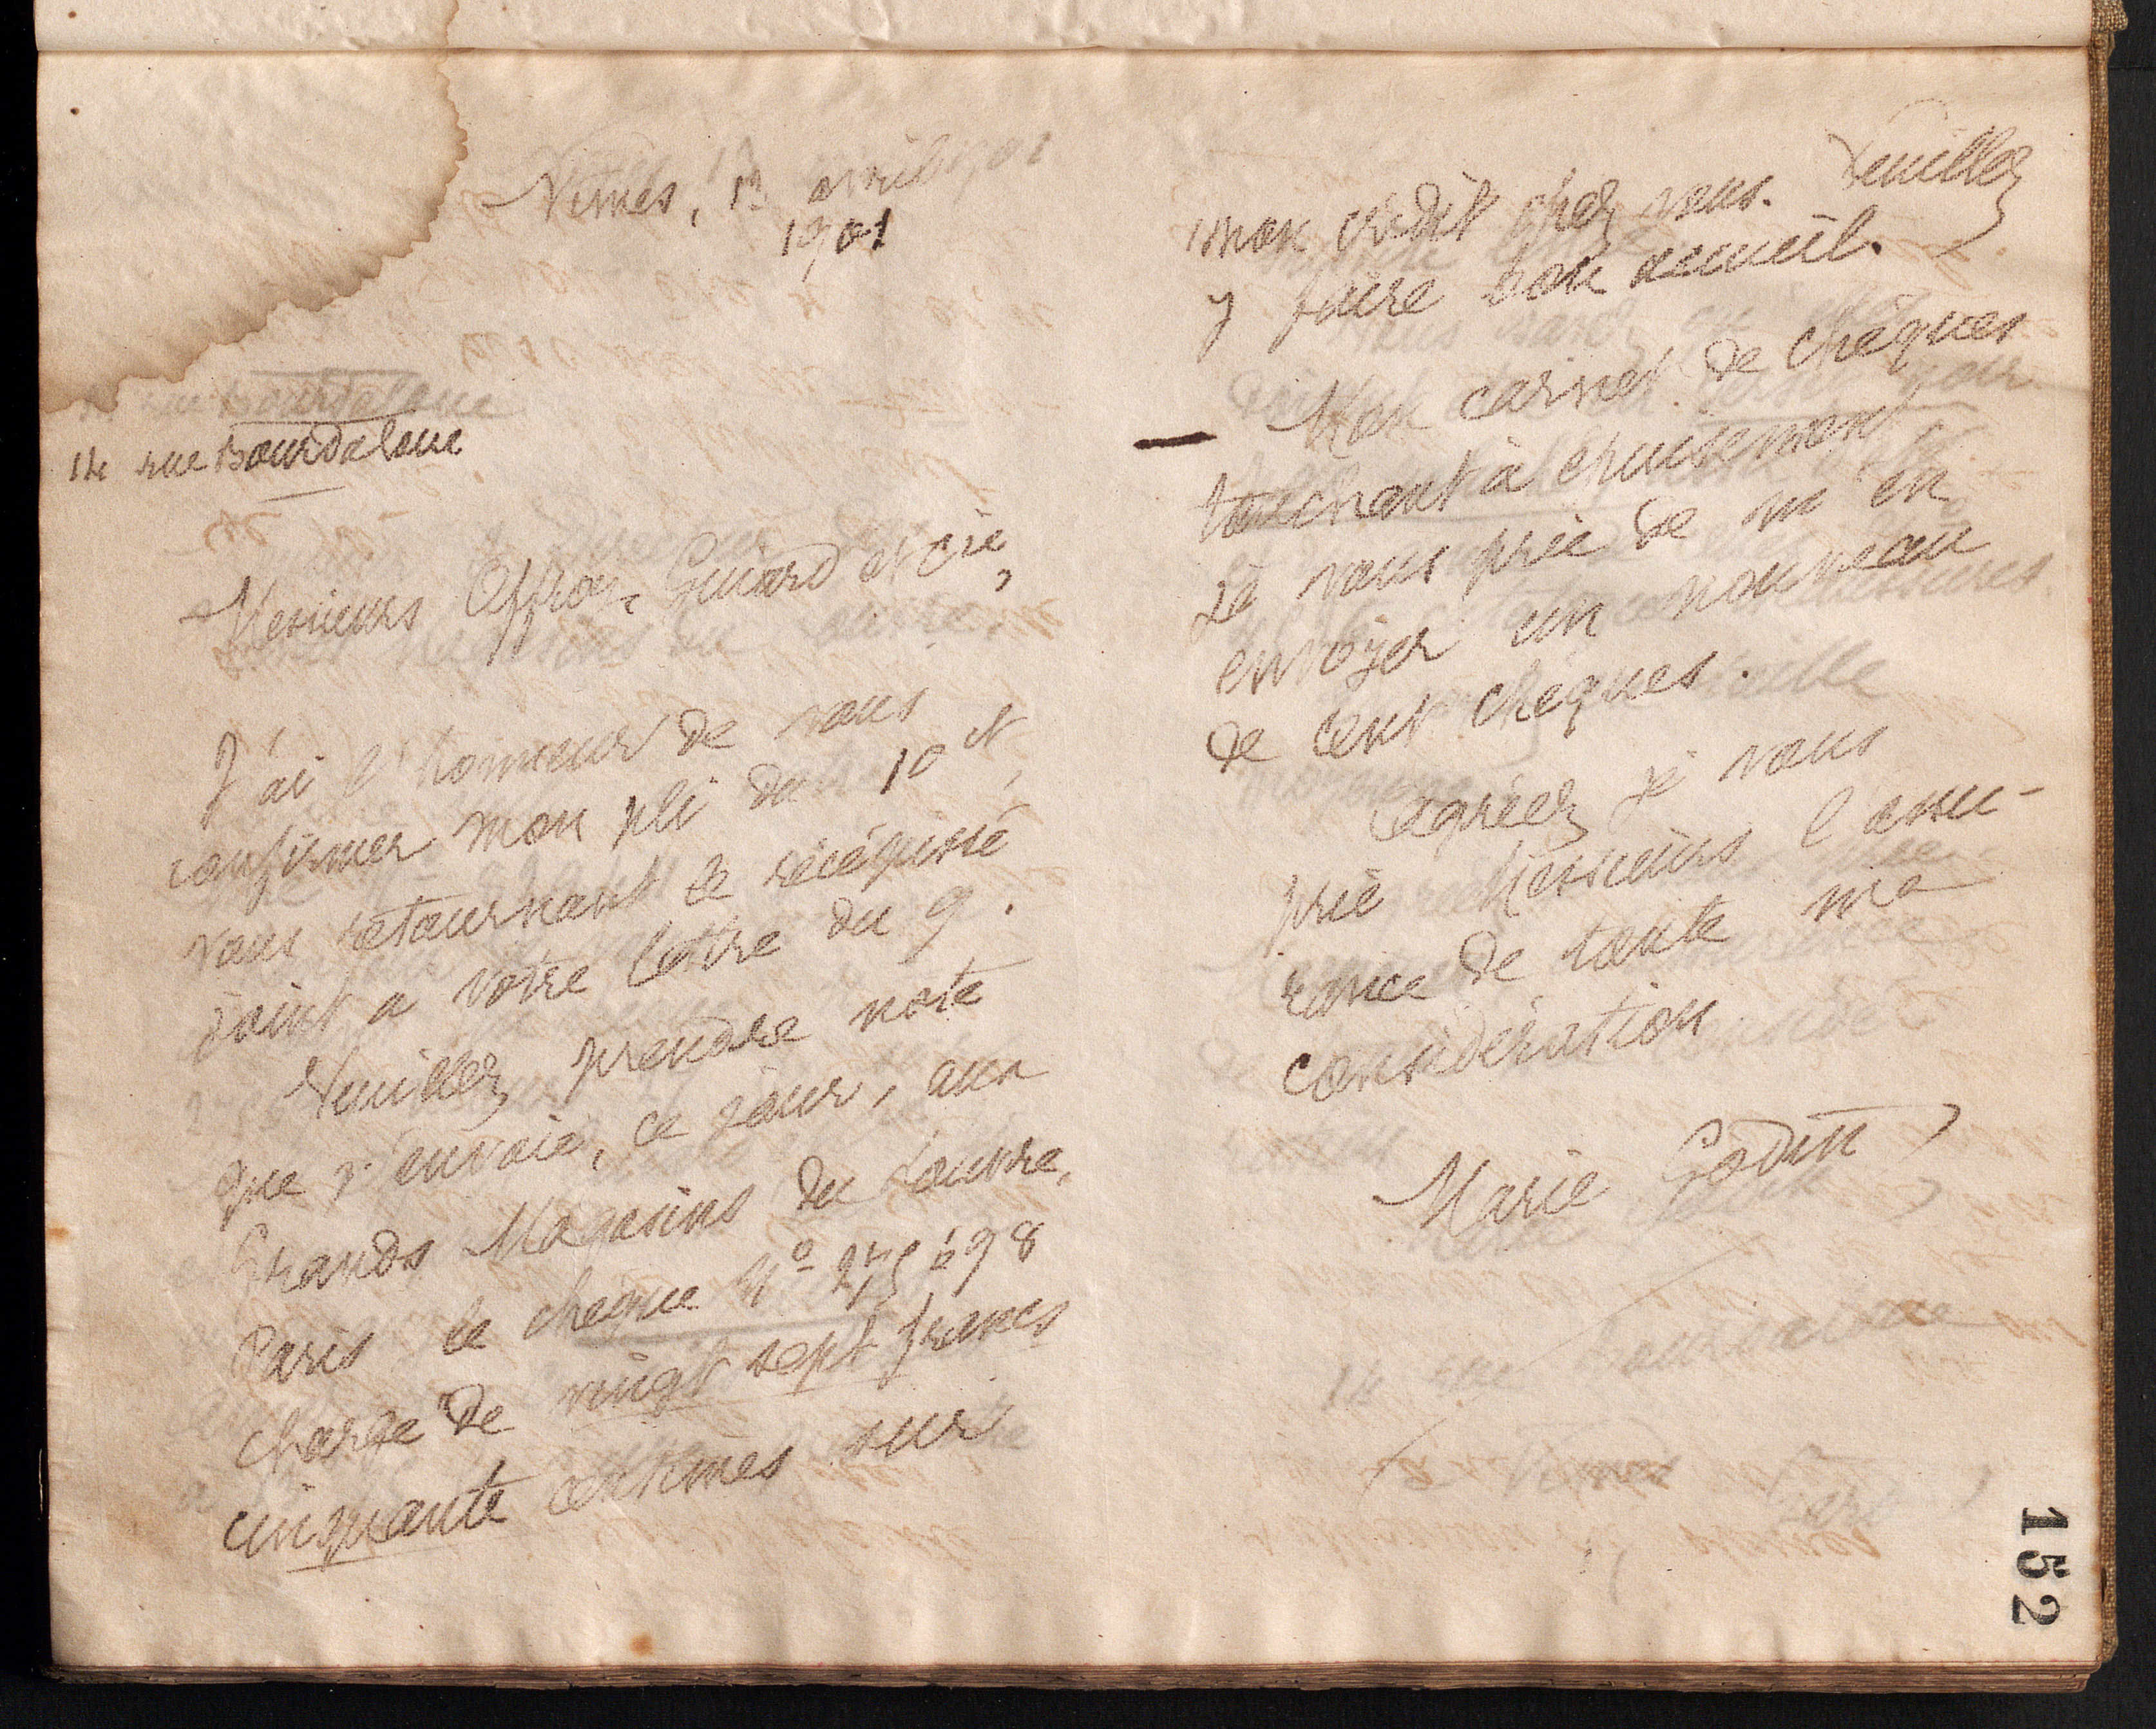 Nîmes, 13 avril
1901
14 rue Bourdaloue
Messieurs Offroy, Guiard et Cie,
J'ai l'honneur de vous
confirmer mon pli du 10 ct,
vous retournant le récépissé
joint a votre lettre du 9.
Veuillez prendre note
que j'envoie, ce jour, aux
Grands Magasins du Louvre,
Paris le chèque N°
charge de vingt sept francs
cinquante centimes sur
mon crédit chez vous. Veuillez
y faire bon accueil.
Mon carnet de chèques
touchant à épuisement
je vous prie de m'en
envoyer un nouveau
de cent chèques.
Agréez je vous
prie Messieurs l'assu-
rance de toute ma
considération
Marie Godin
14 rue Bourdaloue
Nîmes Gard
152